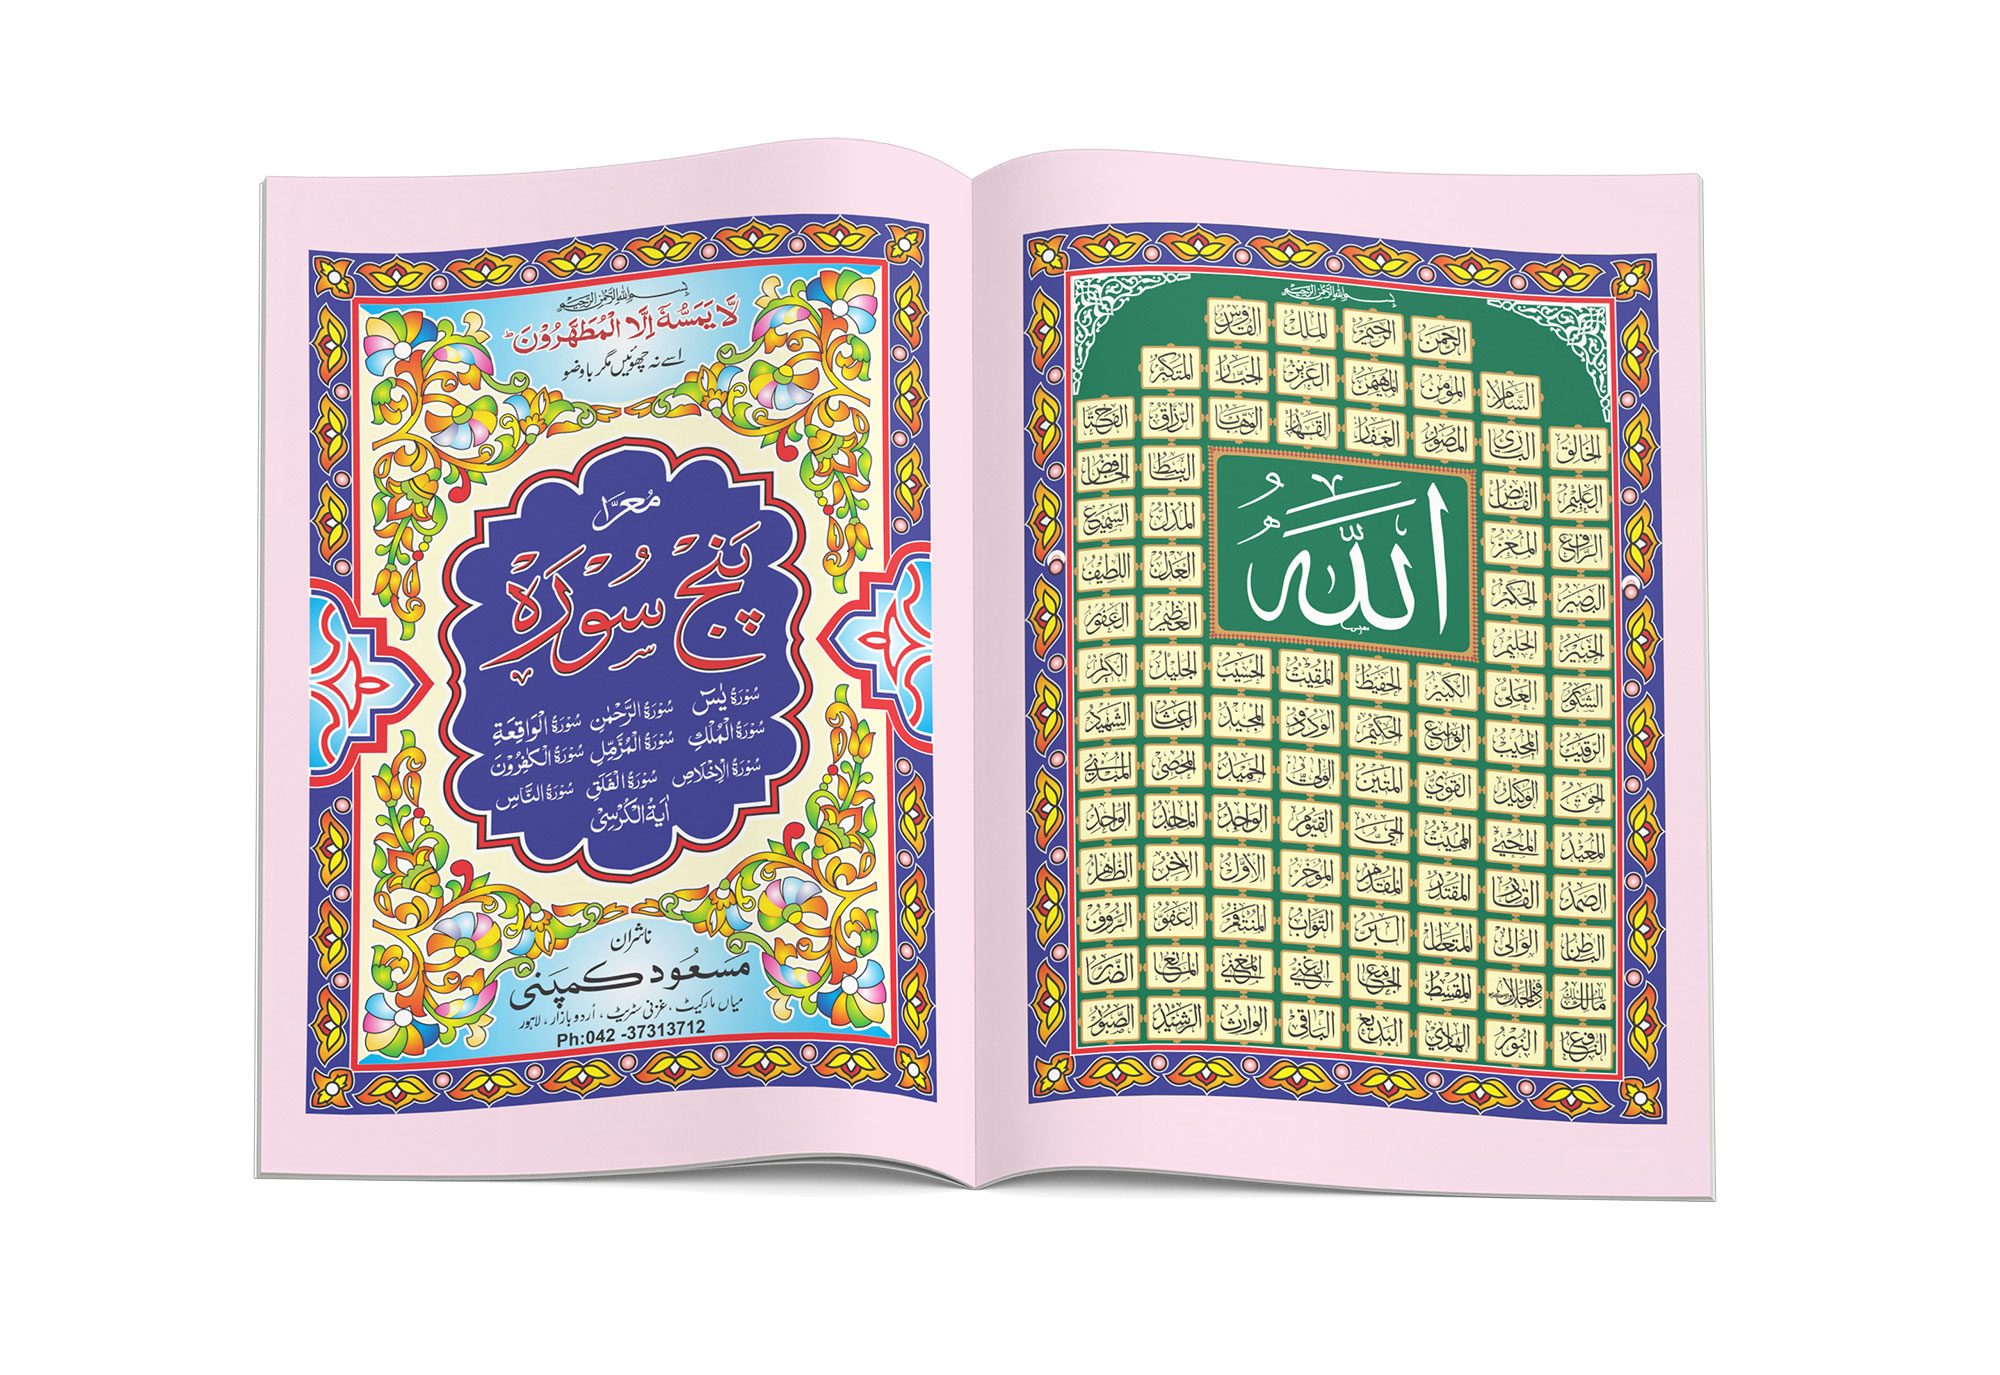 بسم الله الرحمن الرحيم
لَّا يَمَسُّهٗٓ اِلَّا الْمُطَهَّرُوْنَ ؕ
اسے نہ چھوئیں مگر باوضو
مُعرّا
پَنج سُوۡرَہ
سُوْرَةُ يٰسٓ سُوْرَةُ الرَّحْمٰن سُوْرَةُ الْوَاقِعَةِ
سُوْرَةُ الْمُلْكِ سُوْرَةُ الْمُزَّمِّل سُوْرَةُ الْكٰفِرُوْنَ
سُوْرَةُ الْاِخْلَاصِ سُوْرَةُ الْفَلَقِ سُوْرَةُ النَّاسِ
اٰيَةُ الْكُرْسِیْ
ناشران
مسعُود کمپنی
میاں مارکیٹ، غزنی سٹریٹ، اُردو بازار، لاہور
Ph:042 -37313712
بسم الله الرحمن الرحيم
الرحمن الرحيم الملك القدوس
السلام المؤمن المهيمن العزيز الجبار المتكبر
الخالق البارئ المصور الغفار القهار الوهاب الرزاق الفتاح
العليم القابض الباسط الخافض
الله
الرافع المعز المذل السميع
البصير الحكم العدل اللطيف
الخبير الحليم العظيم الغفور
الشكور العلي الكبير الحفيظ المقيت الحسيب الجليل الكريم
الرقيب المجيب الواسع الحكيم الودود المجيد الباعث الشهيد
الحق الوكيل القوي المتين الولي الحميد المحصي المبدئ
المعيد المحيي المميت الحي القيوم الواجد الماجد الواحد
الصمد القادر المقتدر المقدم المؤخر الاول الاخر الظاهر
الباطن الوالي المتعال البر التواب المنتقم العفو الرؤوف
مالك الملك ذوالجلال والاكرام المقسط الجامع الغني المغني المانع الضار
النافع النور الهادي البديع الباقي الوارث الرشيد الصبور